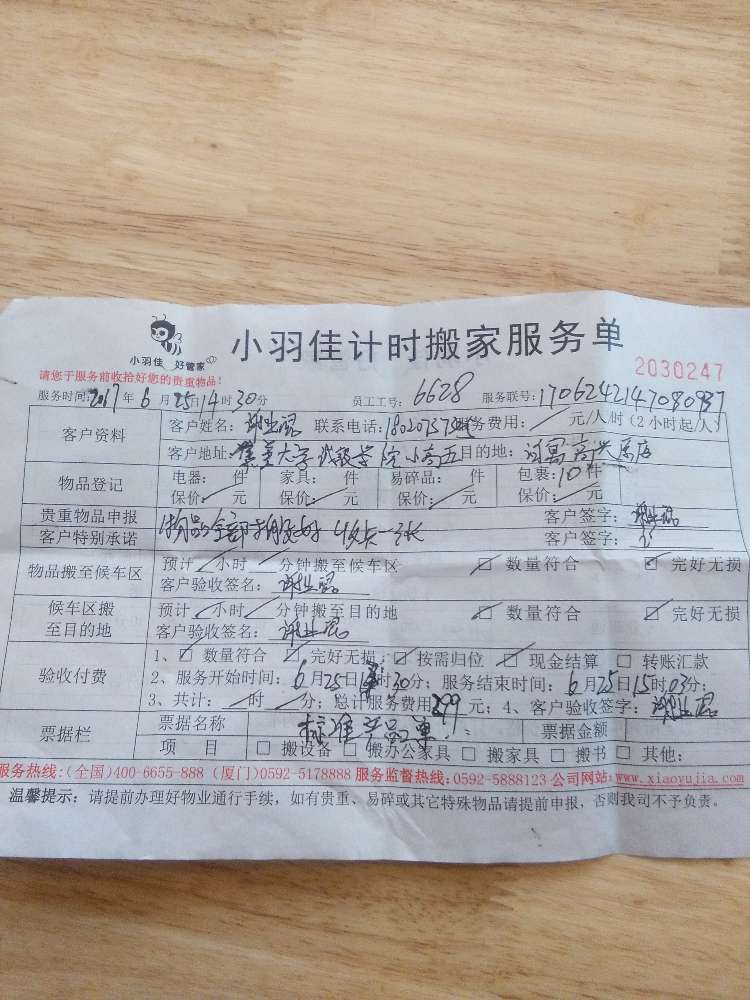 小羽佳 好管家
小羽佳计时搬家服务单
2030247
请您于服务前收拾好您的贵重物品!
服务时间:2017年6月25日14时30分 员工工号: 6628 服务联号:
客户资料
客户姓名: 联系电话: 服务费用: 元/人/时(2小时起/人)
客户地址: 大学 目的地:
物品登记
电器: 件 家具: 件 易碎品: 件 包裹:10件
保价: 元 保价: 元 保价: 元 保价: 元
贵重物品申报 物品全部 客户签字:
客户特别承诺 客户签字:
物品搬至候车区
预计 小时 分钟搬至候车区 数量符合 完好无损
客户验收签名:
候车区搬至目的地
预计 小时 分钟搬至目的地 数量符合 完好无损
客户验收签名:
验收付费
1、 数量符合 完好无损; 按需归位 现金结算 转账汇款
2、服务开始时间: 6月25日 时30分; 服务结束时间: 6月25日15时03分;
3、共计: 时 分; 总计服务费用299元; 4、客户验收签字:
票据栏
票据名称 标准产品单 票据金额
项 目 搬设备 搬办公家具 搬家具 搬书 其他:
服务热线:(全国)400-6655-888 (厦门)0592-5178888 服务监督热线:0592-5888123 公司网站:www.xiaoyujia.com
温馨提示: 请提前办理好物业通行手续, 如有贵重、易碎或其它特殊物品请提前申报, 否则我司不予负责。